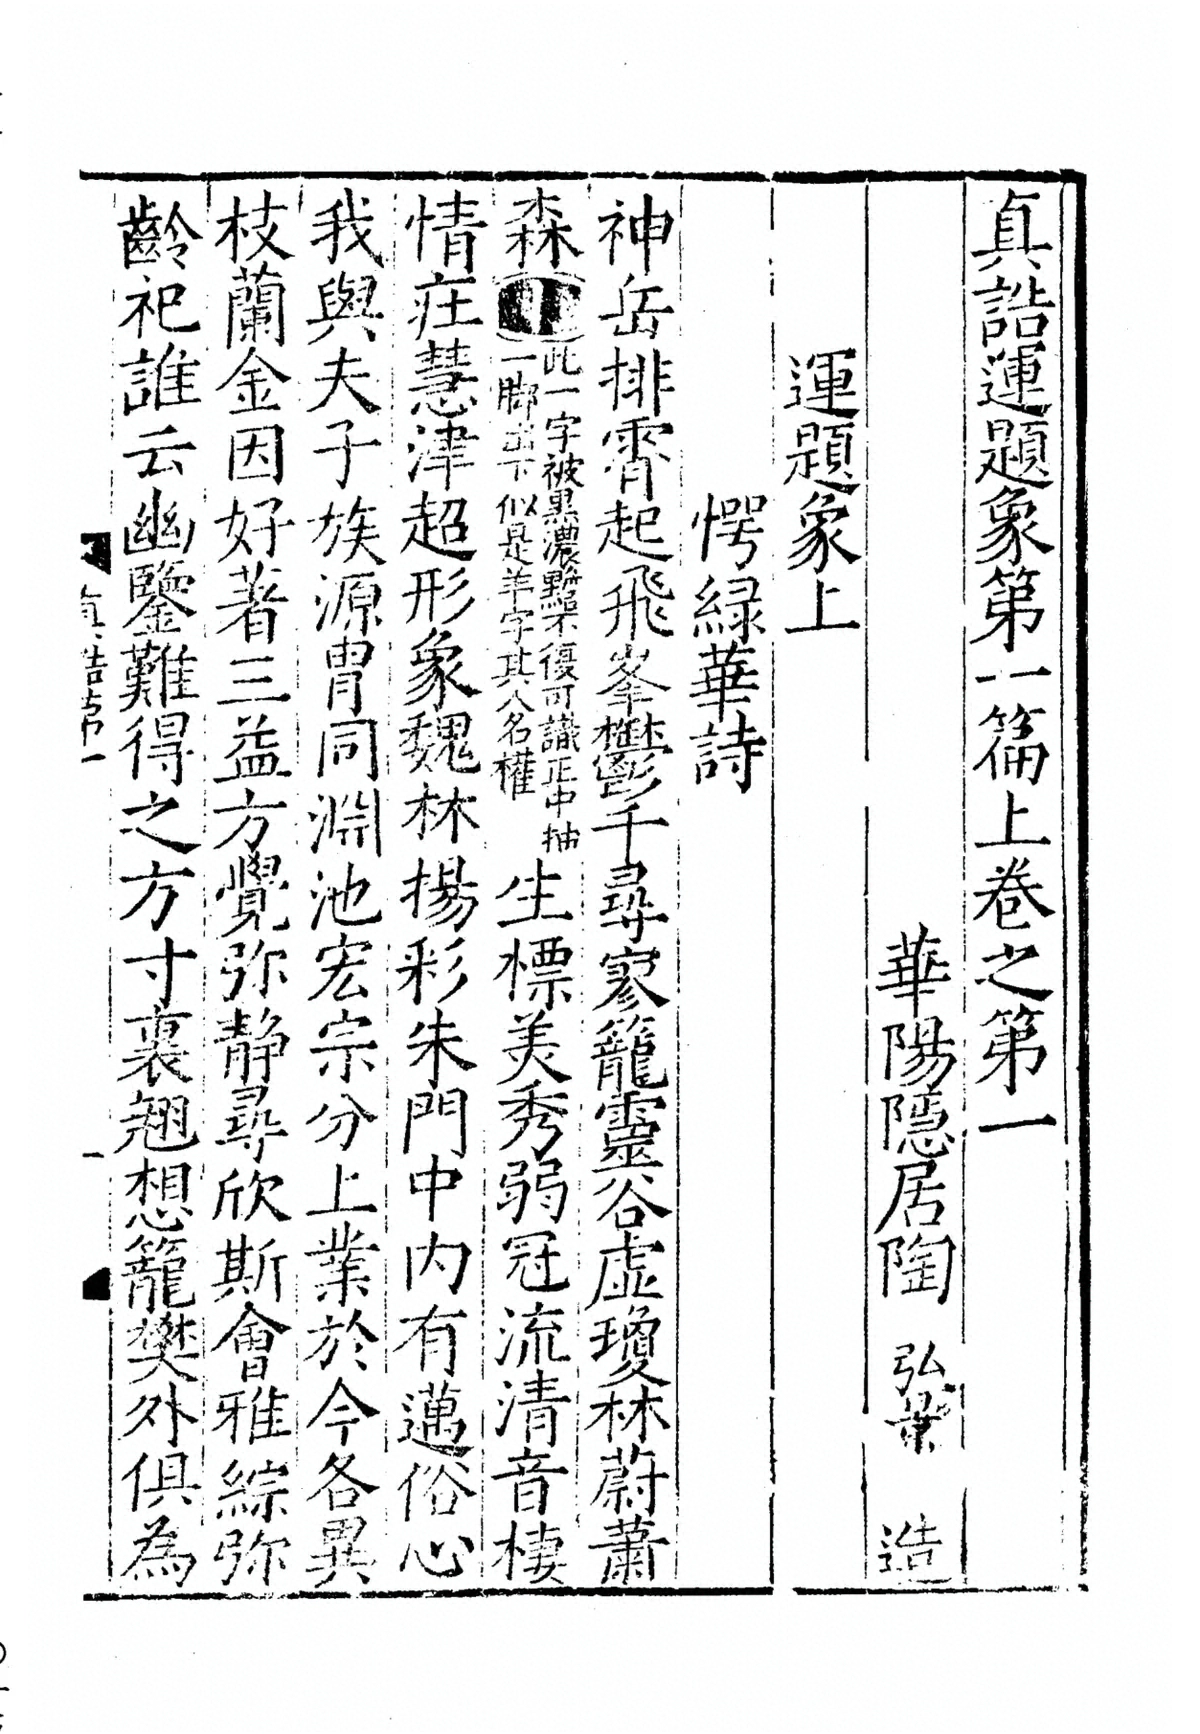 真誥運題象第一篇上卷之第一
華陽隱居陶 弘景 造
運題象上
愕緑華詩
神岳排霄起飛峯欝千尋寥籠靈谷虛瓊林蔚蕭
森此一字被黒濃黵不復可識正中抽一脚出下似是羊字其人名權生標美秀弱冠流清音棲
情莊慧津超形象魏林揚彩朱門中内有邁俗心
我與夫子族源胄同淵池宏宗分上業於今各異
枝蘭金因好著三益方覺弥静尋欣斯會雅綜弥
齡祀誰云幽鑒難得之方寸裏翹想籠樊外俱為
真誥第一
一